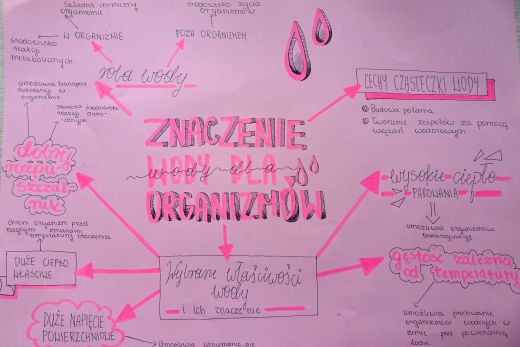 Składnik chemiczny
organizmu
środowisko życia
organizmów
W ORGANIŹMIE
POZA ORGANIZMEM
środowisko
reakcji
metabolicznych
rola wody
umożliwia transport
substancji w
organizmie
stanowi środowisko
reakcji
dobry
rozpu-
szczal
nik
chroni organizm przed
nagłymi zmianami
temperatury otoczenia
DUŻE CIEPŁO
WŁAŚCIWE
DUŻE NAPIĘCIE
POWIERZCHNIOWE
Umożliwia utrzymanie się
ZNACZENIE
WODY DLA
ORGANIZMÓW
Wybrane właściwości
wody
i ich znaczenie
CECHY CZĄSTECZKI WODY
Budowa polarna
Tworzenie zespołów za pomocą
wiązań wodorowych
wysokie ciepło
PAROWANIA
umożliwia organizmom
termoregulację
gęstość zależna
od temperatury
umożliwia przetrwanie
organizmów wodnych w
zimie pod powierzchnią
lodu.